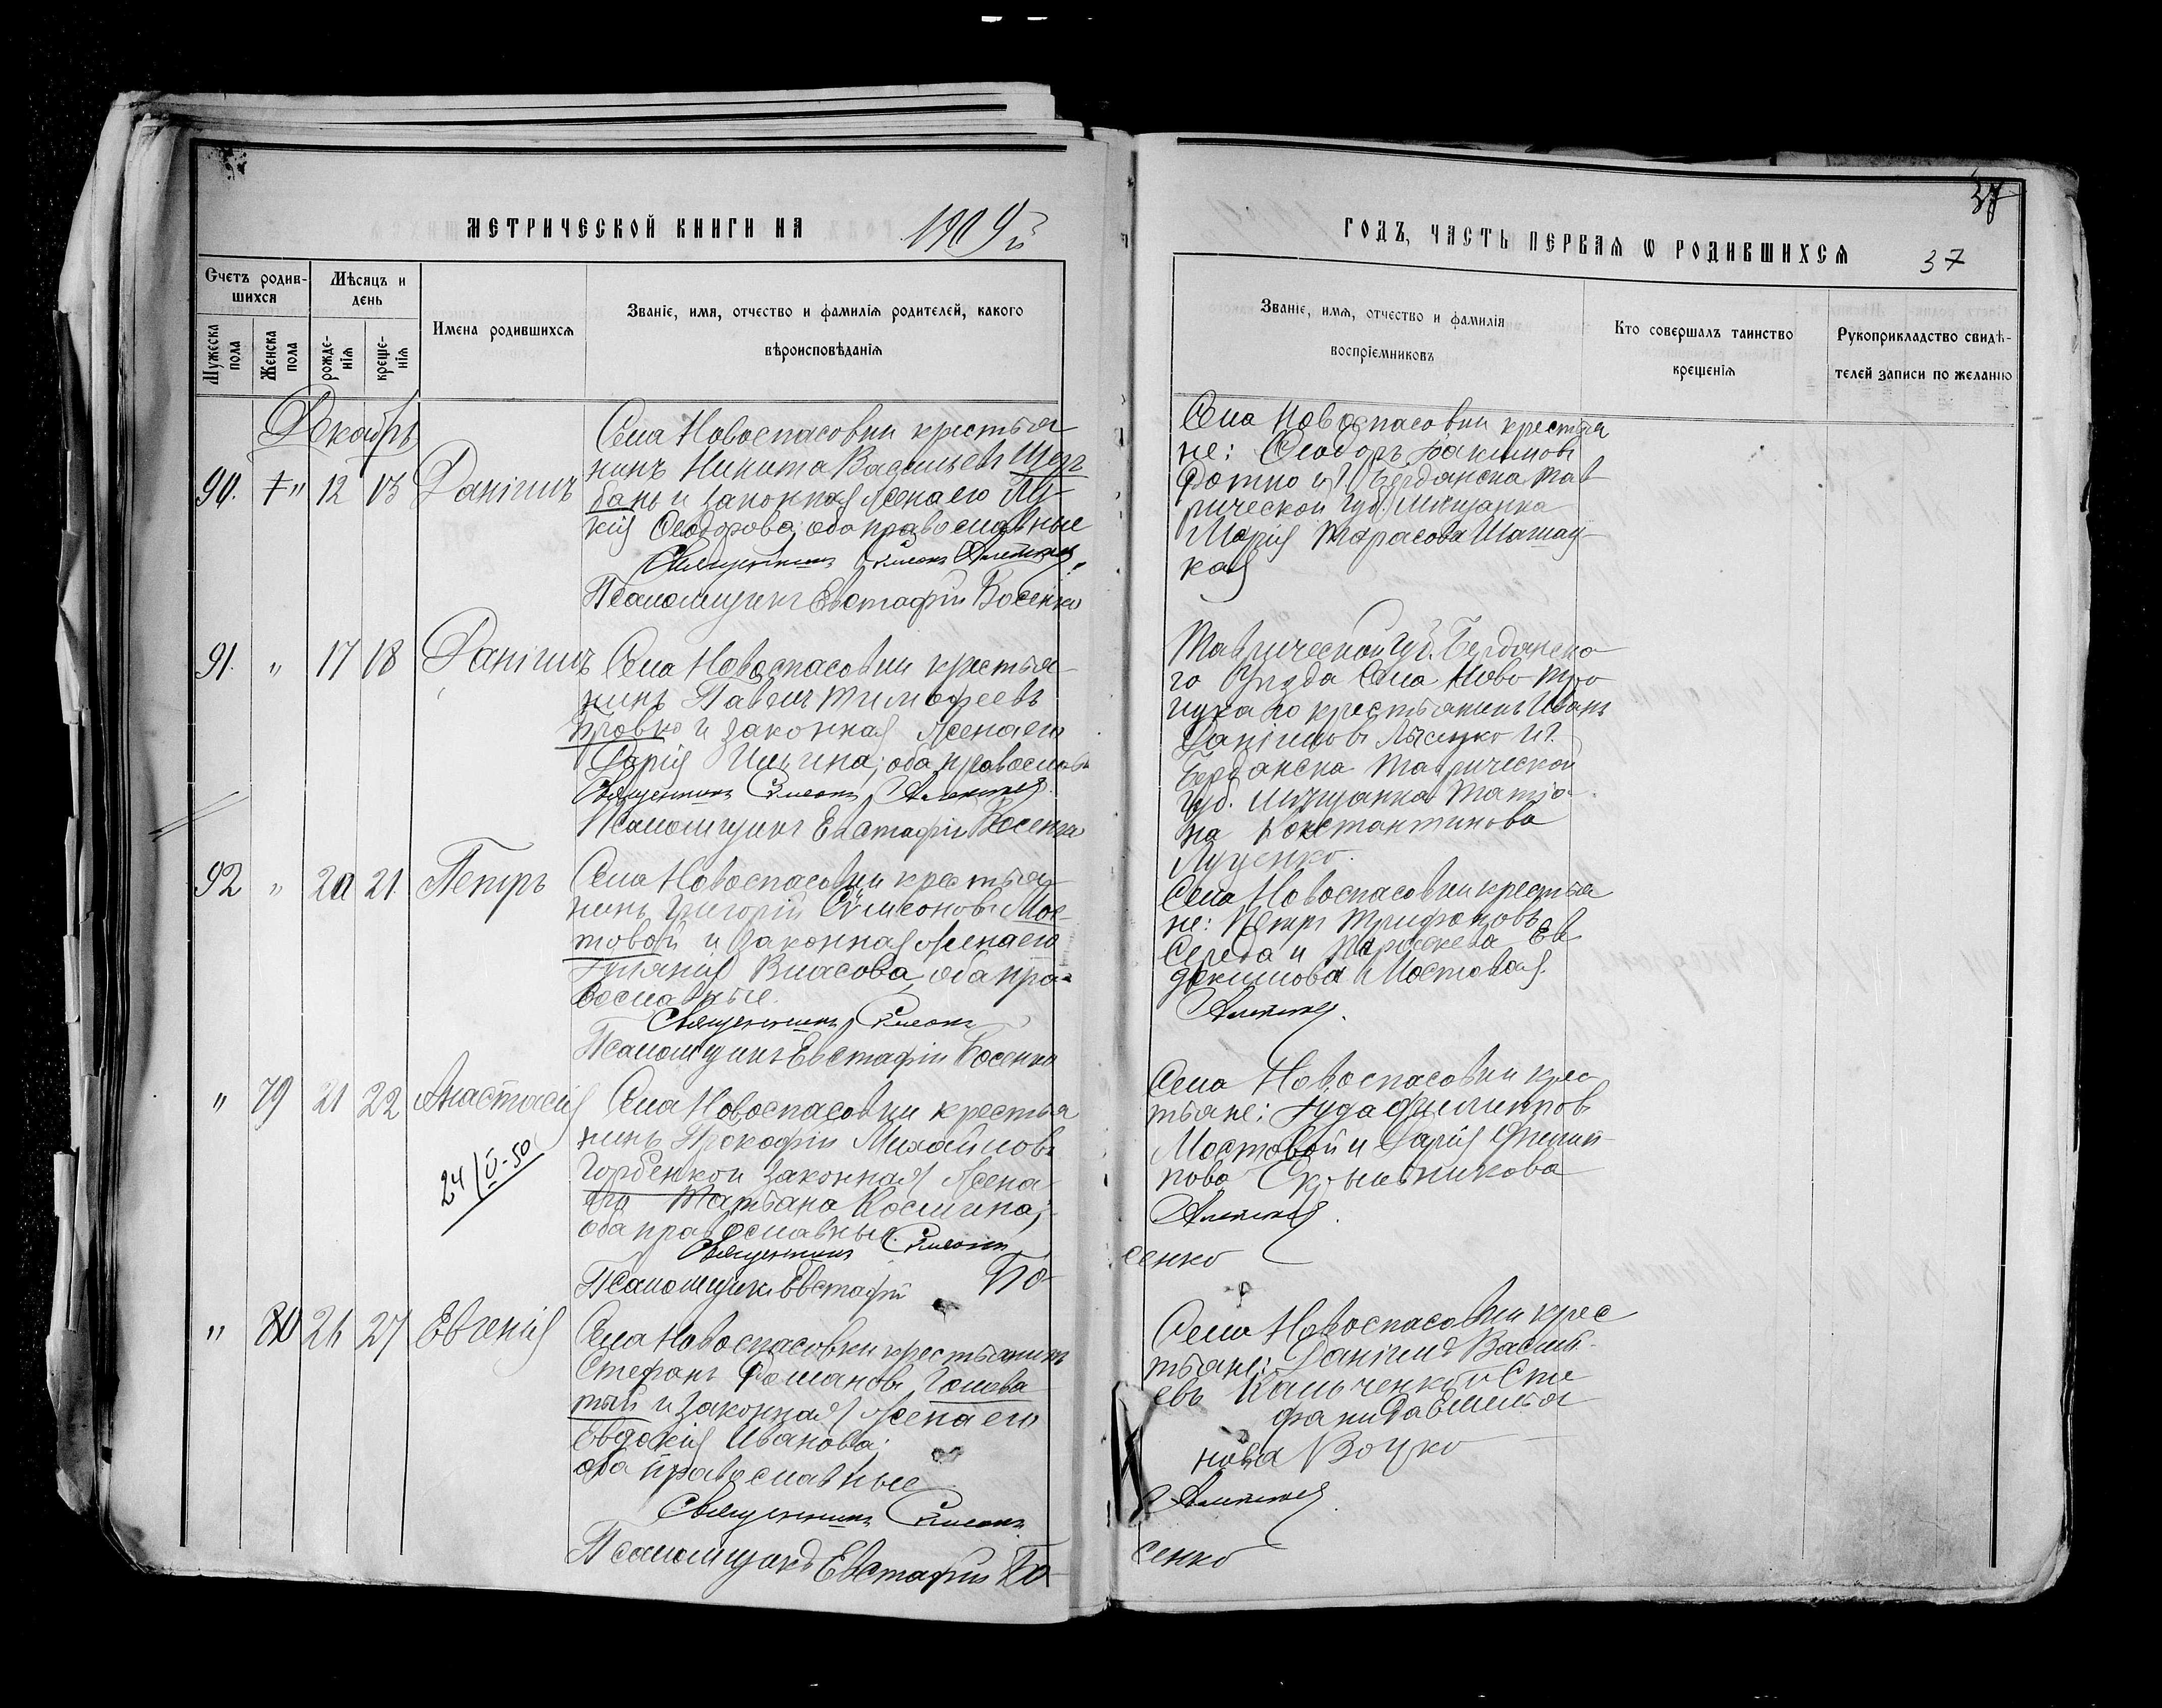 МЕТРИЧЕСКОЙ КНИГИ НА 1909й
Счетъ родив-
шихся
Мѣсяцъ и
день
Мужеска
пола
Женска
пола
рожде-
нія
креще-
нія
Имена родившихся
Званіе, имя, отчество и фамилія родителей, какого
вѣроисповѣданія
Декабрь
90. " 12 13 Даніилъ
Села Новоспасовки крестья
нинъ Никита Васильевъ
и законная жена его Лу-
кія Ѳеодорова, оба православные
Священникъ Симеонъ
Псаломщикъ Евстафій Босенко
91. " 17 18 Даніилъ
Села Новоспасовки крестья-
нинъ Павелъ Тимофеевъ
Бровко и законная жена его
Дарія Ильина; оба православн
Священникъ Симеонъ
Псаломщикъ Евстафій Босенко
92 " 20 21 Петръ
Села Новоспасовки крестья-
нинъ Григорій Симеоновъ Мос-
товой и законная жена его
Власова, оба пра-
вославные.
Священникъ Симеонъ
Псаломщикъ Евстафій Босенко
" 79 21 22 Анастасія
24/V-50
Села Новоспасовки крестья
нинъ Прокофій Михайловъ
Горбенко и законная жена
его Татьяна Космина;
оба православные.
Священникъ Симеонъ
Псаломщикъ Евстафій Бо-
" 80 26 27 Евгенія
Села Новоспасовки крестьянинъ
Стефанъ Романовъ Голова
тый и законная жена его
Евдокія Иванова;
оба православные
Священникъ Симеонъ
Псаломщикъ Евстафій Бо-
37
ГОДЪ, ЧАСТЬ ПЕРВАЯ Ѡ РОДИВШИХСЯ
37
Званіе, имя, отчество и фамилія
воспріемниковъ
Кто совершалъ таинство
крещенія
Рукоприкладство свидѣ-
телей записи по желанію
Села Новоспасовки крестья
не: Ѳеодоръ Іакимовъ
и г. Бердянска Тав
рической губ. мѣщанка
Марія Тарасова
кая
Таврической губ. Бердянска-
го Уѣзда Села Ново Тро
ицкаго крестьянинъ Иванъ
Даніиловъ Лысенко и г.
Бердянска Таврической
губ. мѣщанка Татія-
на Константинова
Луценко.
Села Новоспасовки крестья
не: Петръ Трифоновъ
Середа и Параскева Ев
докимова Мостовая.
Села Новоспасовки крес
тьяне: Іуда Филиппов
Мостовой и Дарія Филип-
пова Скрыпникова
сенко
Села Новоспасовки крес
тьяне: Даніилъ Васил-
евъ Кальченко и Сте
фанида Емелья
нова Воцко
сенко